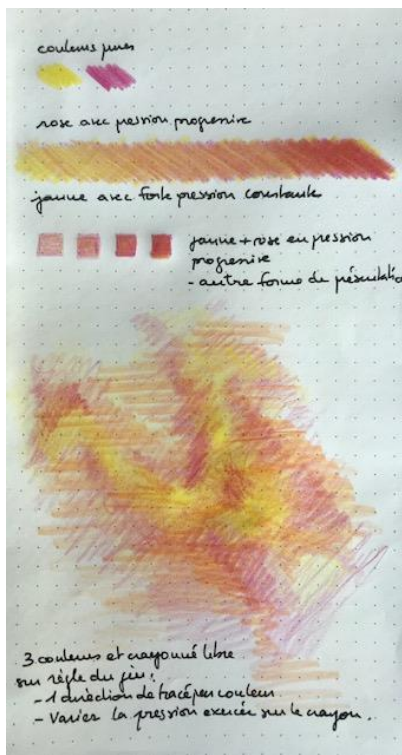 couleurs pures
rose avec pression progressive
jaune avec forte pression constante
jaune + rose en pression
progressive
- autre forme de présentatio
3 couleurs et crayonné libre
sur règle du jeu :
- 1 direction de tracé par couleur
- Varier la pression exercée sur le crayon.